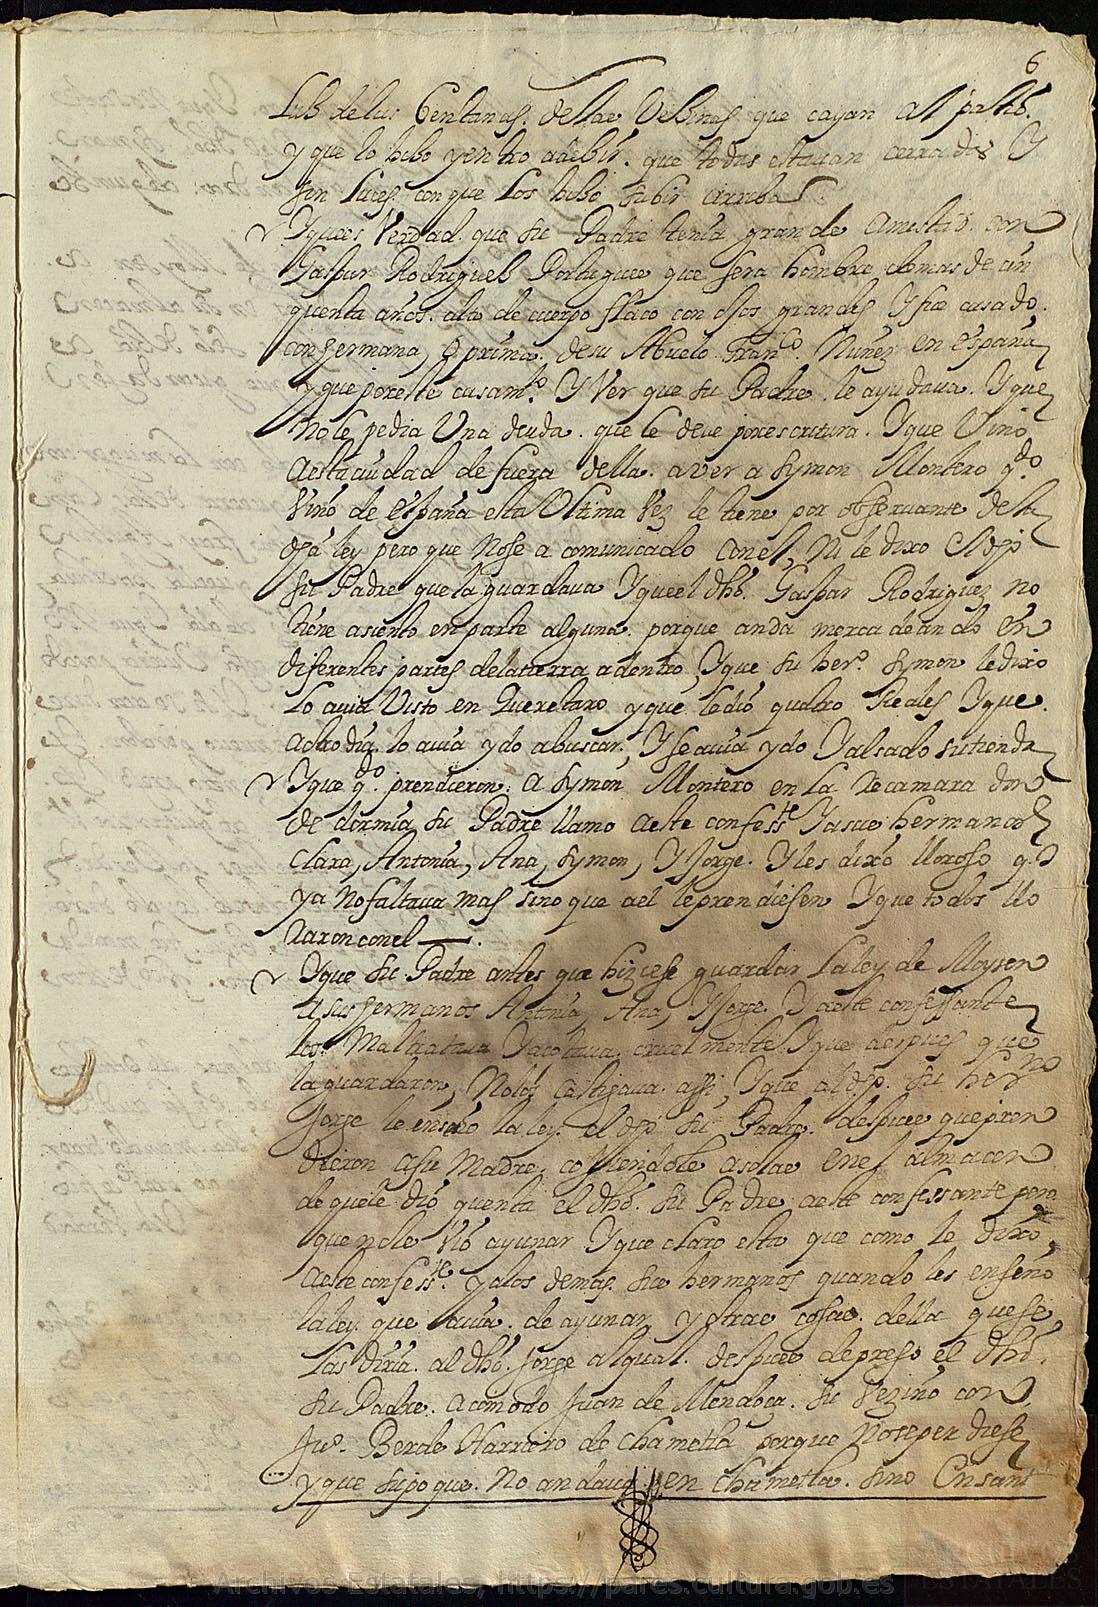 6
Luz de las Bentanas. dellas Vesinas que cayan al patio.
y que lo hibo y entro adebir. que todas estauan cerradas Y
sin Luces. con que Los hibo subir arriba
Yquees Verdad. que su Padre tenia grande Amistad. con
Gaspar Rodriguez Portugues que sera hombre demas de cin
quenta años. alto de cuerpo flaco con ojos grandes Y fue casado.
con hermana, o prima. de su Abuelo. Franco. Nuñez en españa
y que poreste casamto. Y Ver que su Padre. le ayudaua. Yque
no le pedia Una deuda. que le deue porescritura. Yque Vino
Aestaciudad de fuera della. a ver a symon Montero qdo
Vino de españa esta Vltima Vez le tiene por obseruante de la
dha ley pero que Nose a comunicado conel, Ni le dixo el dho
su Padre que la guardaua Yqueel dho. Gaspar Rodriguez no
tiene asiento enparte alguna. porque anda mercadeando En
diferentes partes delatierra adentro, Yque su hero. symon ledixo
Lo auia Visto en Queretaro yque ledio quatro Reales Yque.
Aotro dia. lo auia ydo abuscar. Yseauia ydo Yalsado su tienda
Yque qdo. prendieron. a symon Montero en La recamara don
de dormia su Padre llamo aeste confesste Yasus hermanos
Clara, Antonia, Ana, symon, Y Jorge. Yles dixo lloroso q.
ya nofaltaua mas sino que ael leprendiesen Yque todos llo
raron conel.
Yque su Padre antes que hiziese guardar la ley de Moysen
a sus hermanos Antonia, Ana, YJorge. Yaeste confessante
los. Maltrataua Yacotaua. cruelmente Yque despues que
laguardaron, Nolos castigaua. assi, Yque al dho. su herno
Jorge le enseño la ley. el dho su Padre. despues que pren
dieron asu Madre, cogiendole asolas enel almacen
de quele dio quenta el dho. su Padre aeste confessante pero
que nole Vio ayunar Yque claro esta que como le dixo,
Aeste confesste. yalos demas. sus hermanos quando les enseño
la ley. que auia. de ayunar yotras cosas. della quese
Las diria. al dho. Jorge alqual. despues depreso el dho.
su Padre. acomodo Juan de Mendoça. su Vezino con
Juo. Berde Harriero de chametla porque Noseperdiese
yque supo que. No andaua en Chametla. sino Ensant
Archivos Estatales, https://pares.cultura.gob.es
ESTATALES